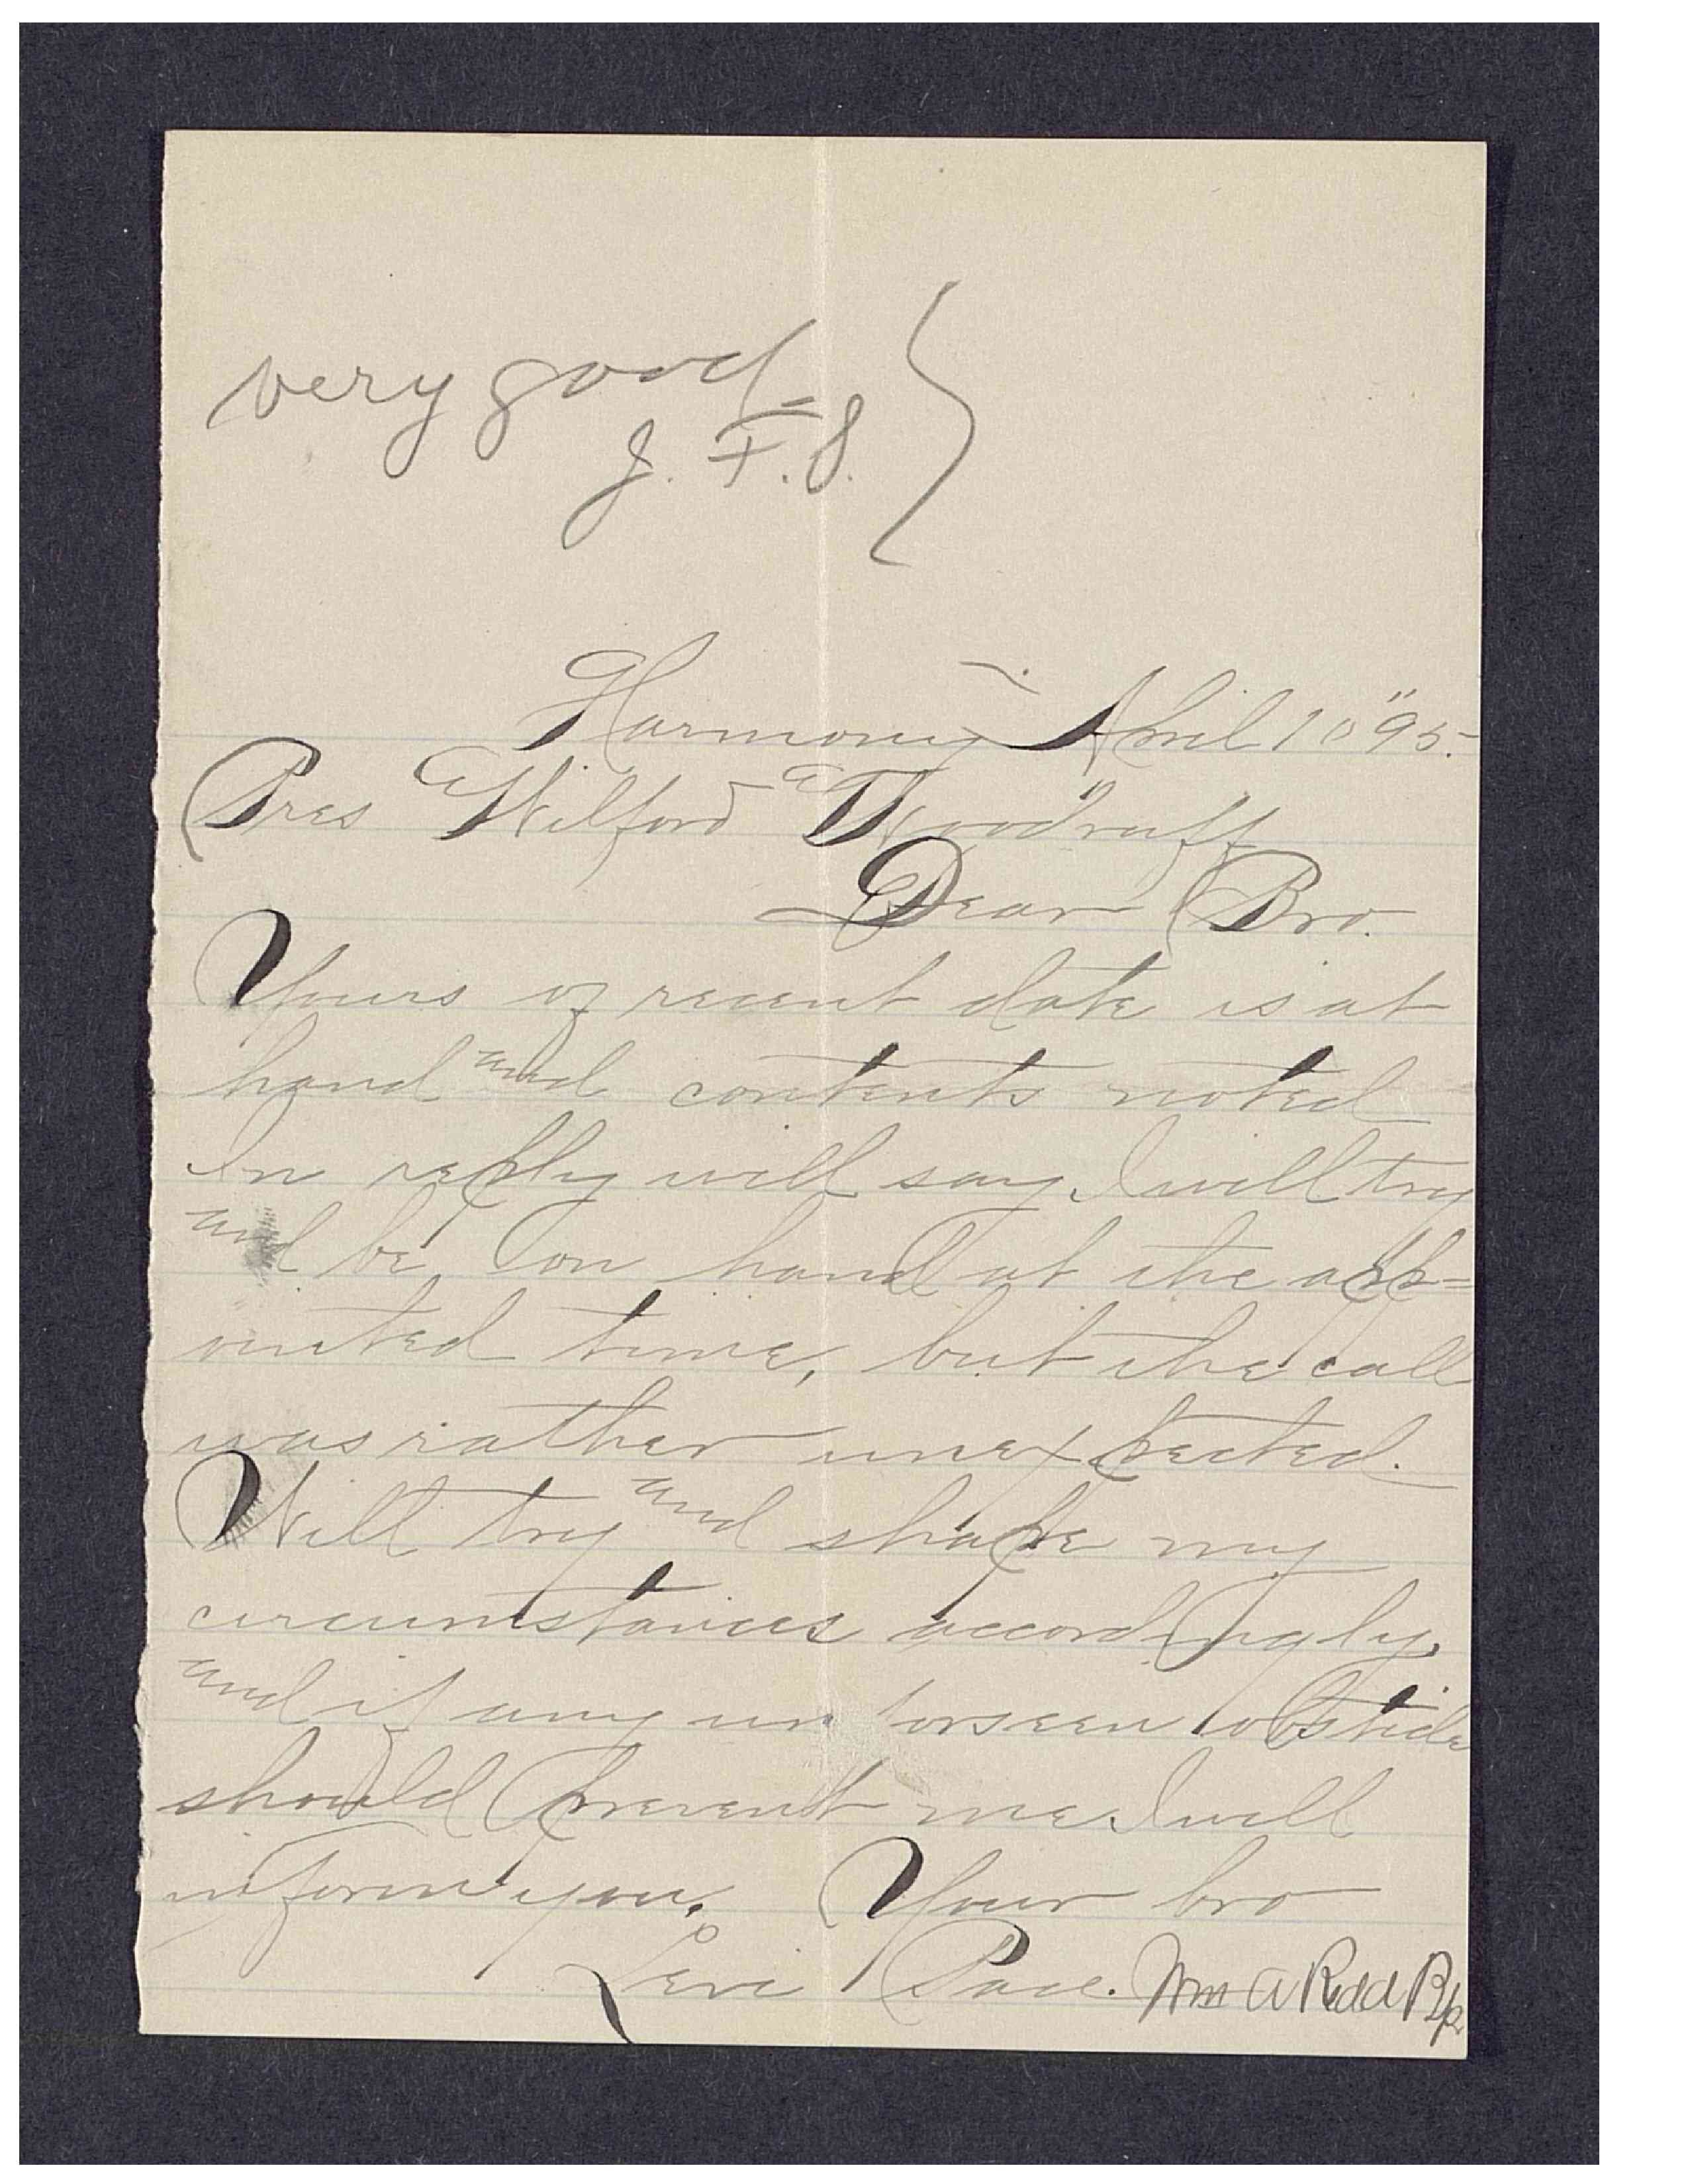 very good
J. F. S.
Harmony April 10" 95.
Pres Wilford Woodruff
Dear Bro.
Yours of recent date is at
hand and contents noted
In reply will say I will try
and be on hand at the app=
ointed time, but the call
was rather unexpected.
Will try and shape my
circumstances accordingly
and if any un forseen
should prevent me I will
inform you. Your bro
Levi Pace. Wm A Redd Bp.